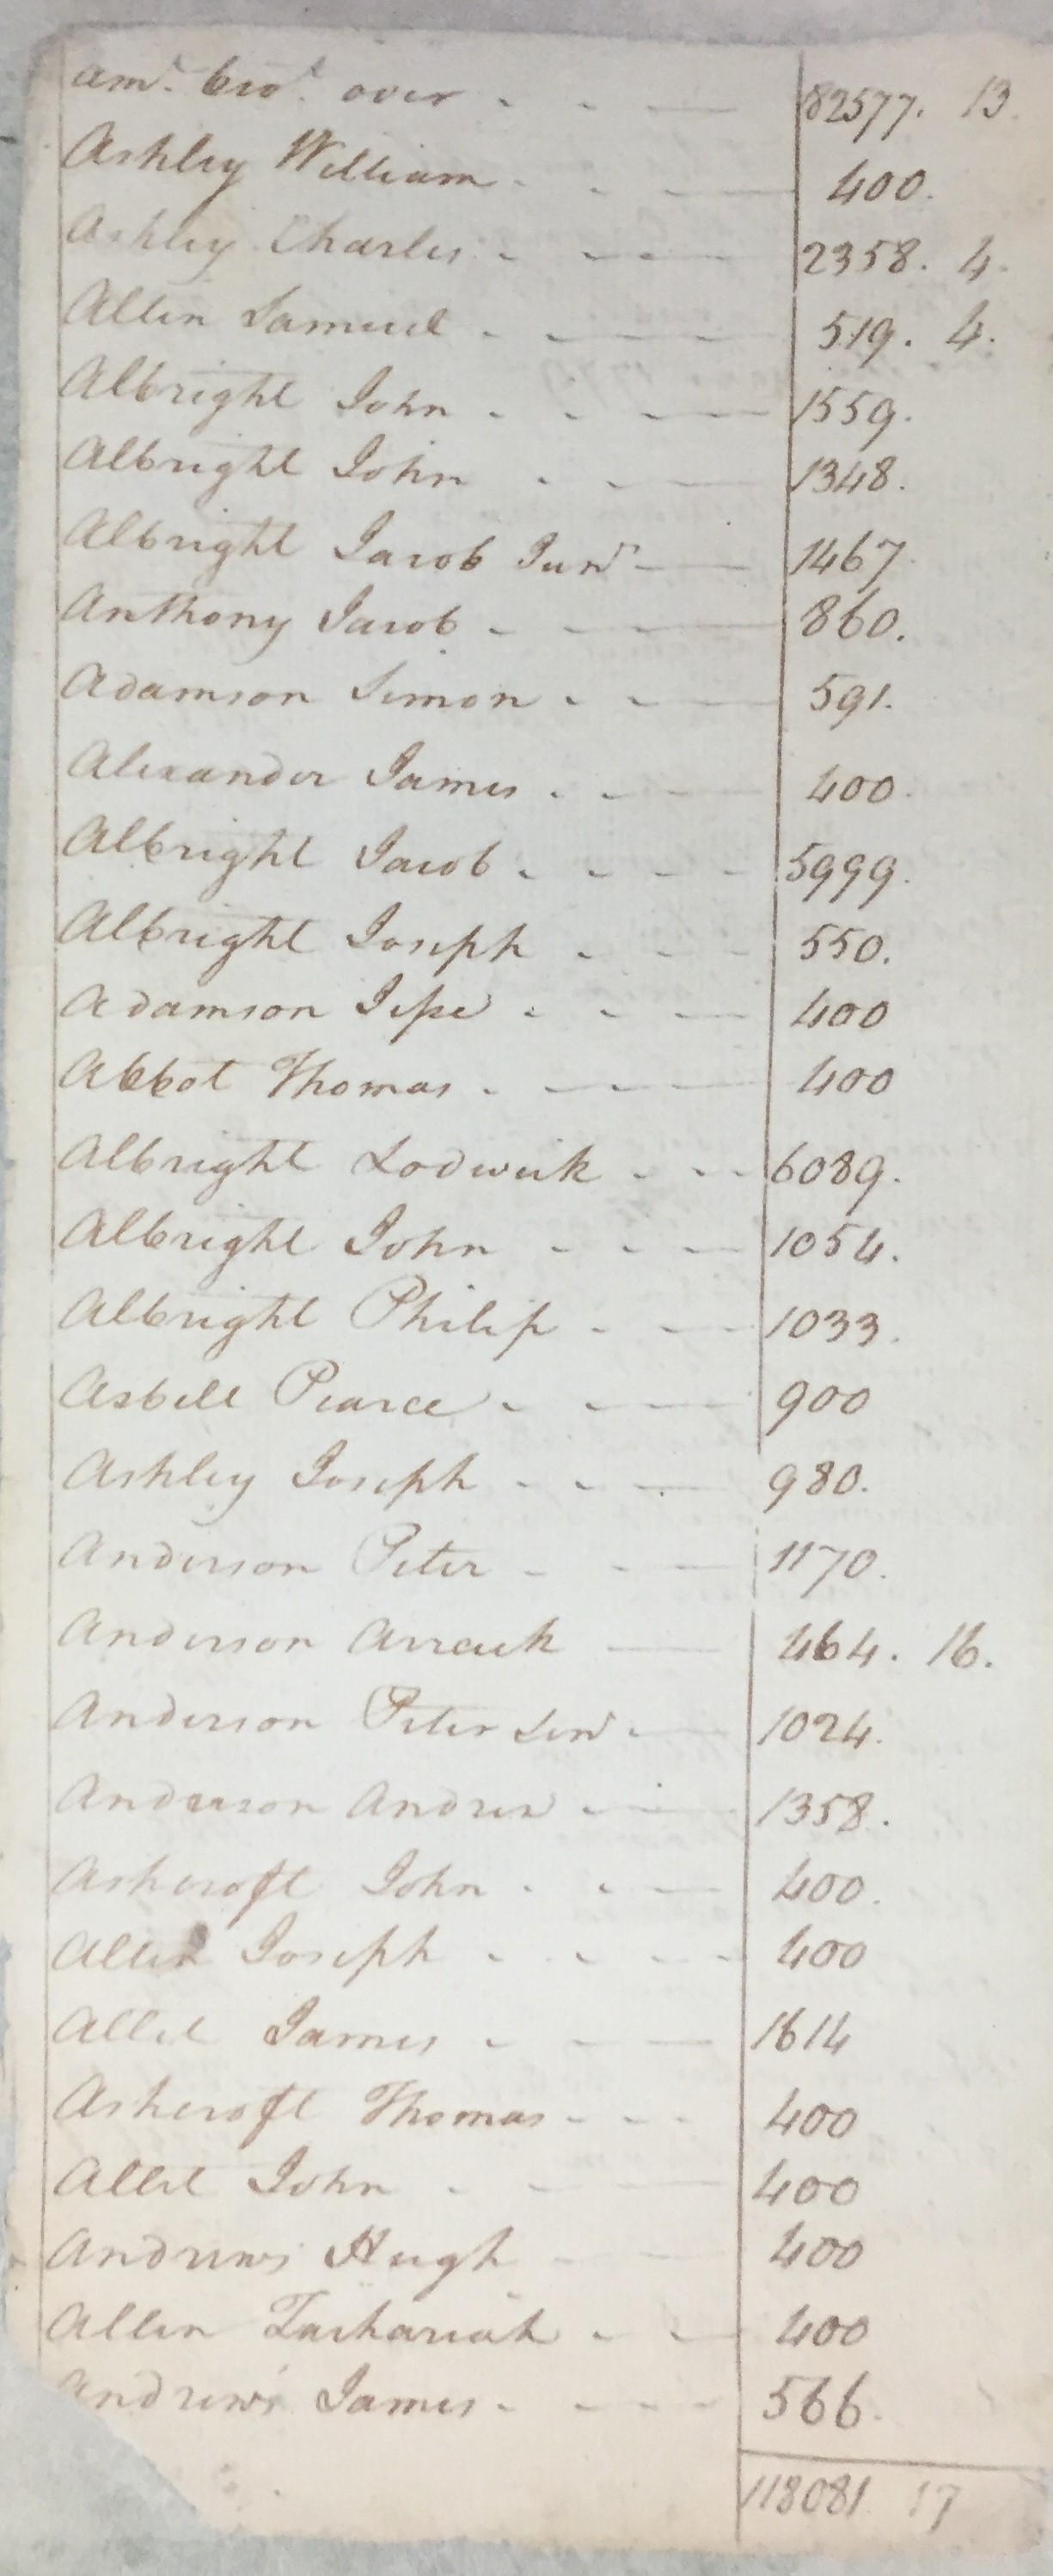 amt. brot. over 82577. 13.
Ashley William 400.
Ashley Charles 2358. 4.
Allen Samuel 519. 4.
Albright John 1559.
Albright John 1348.
Albright Jacob Junr 1467.
Anthony Jacob 860.
Adamson Simon 591.
Alexander James 400.
Albright Jacob 5999.
Albright Joseph 550.
Adamson Jesse 400
Abbot Thomas 400
Albright Lodwick 6089.
Albright John 1054.
Albright Philip 1033.
Asbell Pearce 900
Ashley Joseph 980.
Anderson Peter 1170.
Anderson 464. 16.
Anderson Peter Senr 1024.
Anderson Andrew 1358.
Ashcroft John 400.
Allen Joseph 400
Allet James 1614
Ashcroft Thomas 400
Allet John 400
Andrews Hugh 400
Allen Zachariah 400
Andrews James 566.
118081 17